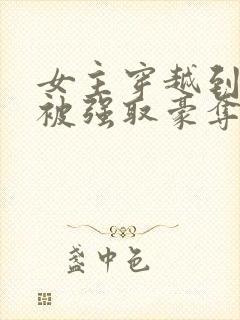 女主穿越到
被强取豪夺
盏中色